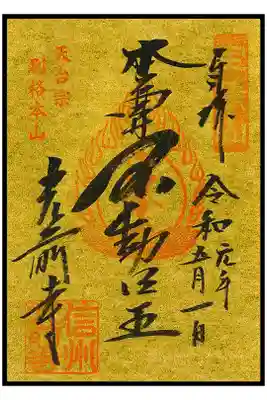 奉拝
令和元年
五月一日
本尊
不動明王
天台宗
別格本山
光前寺
信州